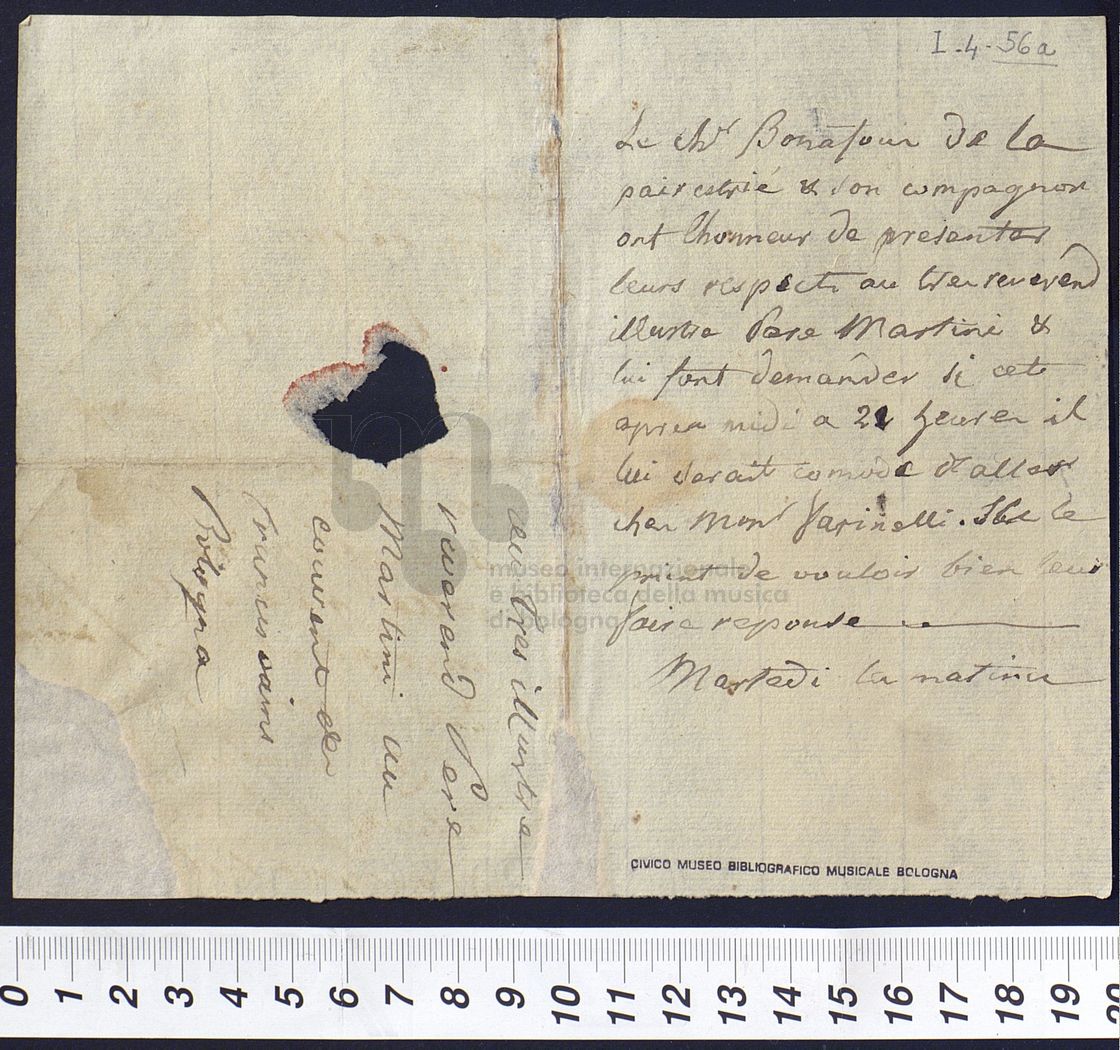 I-4-56a
Le ch.r Bonafour de la
pairestrié & son compagnon
ont lhonneur de presenter
leurs respects au tres reverend
illustre Pere Martini &
lui font demander si cete
apres midi a 21 heures il
lui serait comode d'aller
ches Mons.r Farinelli. Ils le
prient de vouloir bien leur
faire reponse
Martedi la matiné
au tres illustre
reverend Pere
Martini au
couvent de
Bologna
museo internazionale
e biblioteca della musica
di bologna
CIVICO MUSEO BIBLIOGRAFICO MUSICALE BOLOGNA
0 1 2 3 4 5 6 7 8 9 10 11 12 13 14 15 16 17 18 19 20